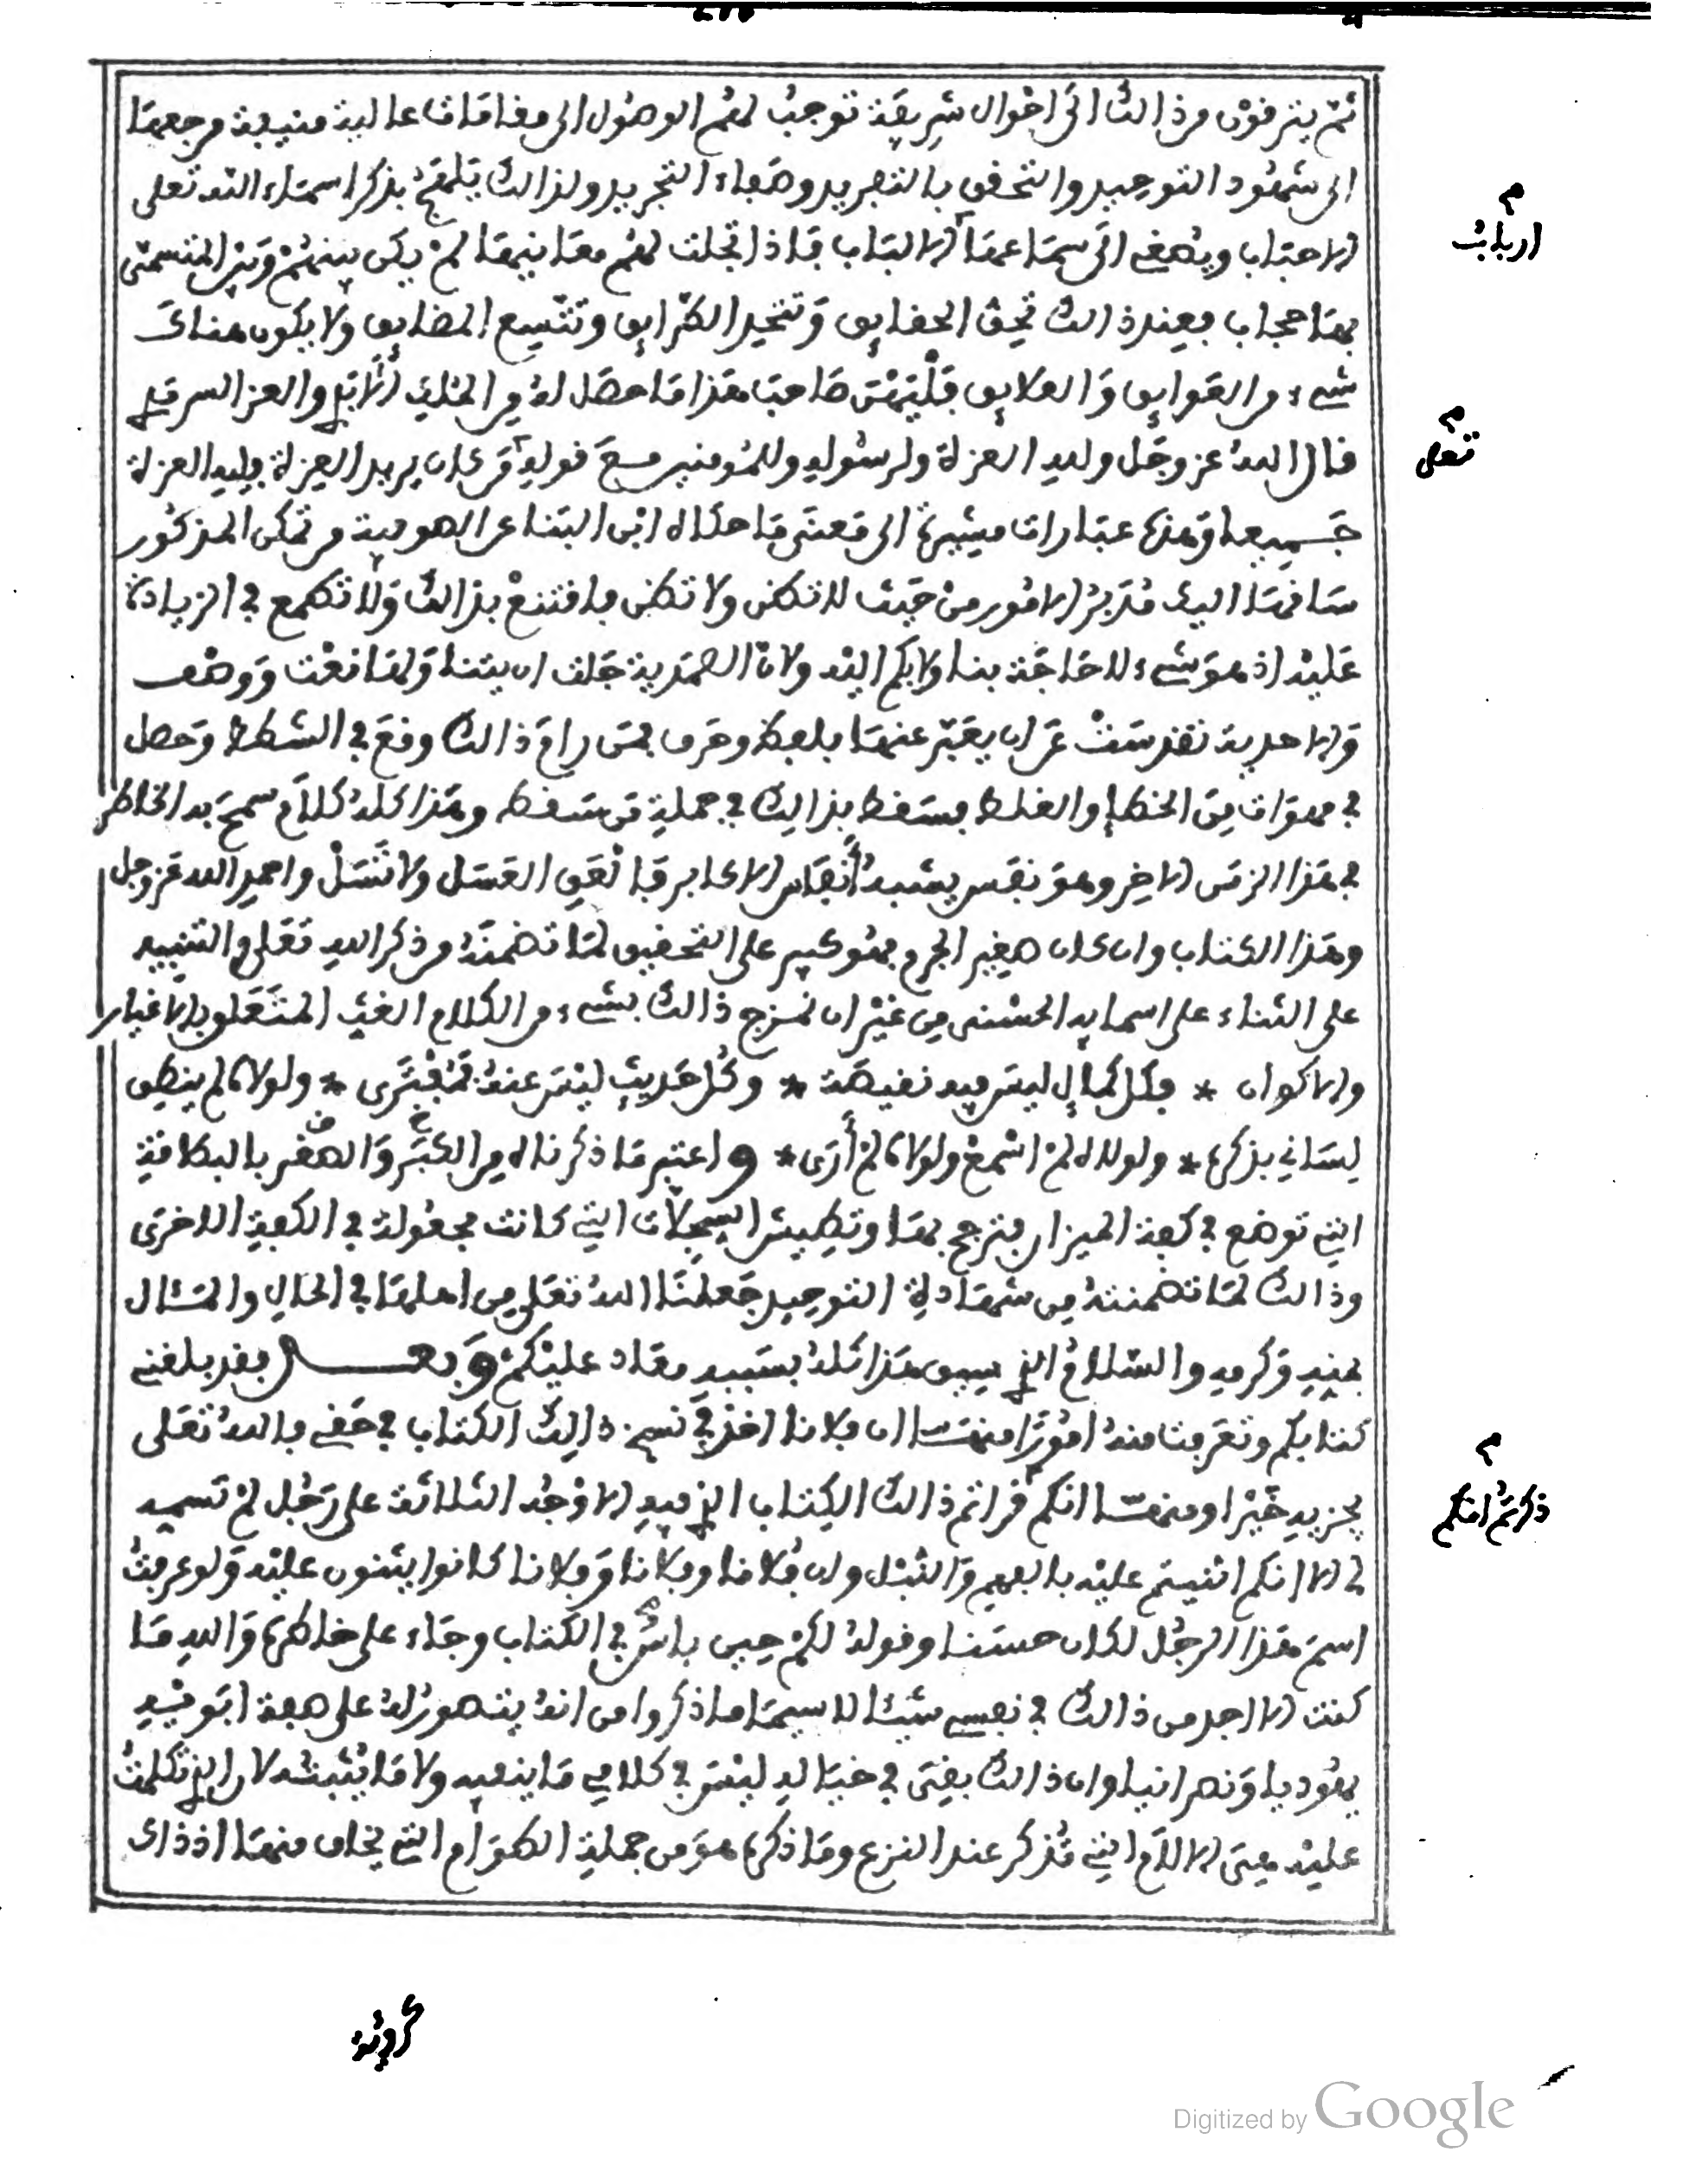 ثم يترقون من ذالك الى احوال شريفة توجب لهم الوصول الى مقامات عالية منيفة مرجعها
الى شهود التوحيد والتحقق بالتفريد وصفاء التجريد ولذالك يلهج بذكر اسماء الله تعلى
الاحباب ويصغى الى سماعها الالباب فاذا تجلت لهم معانيها لم يكن بينهم وبين المتسمى
بها حجاب فعند ذالك تحق الحقايق وتتحد الطرايق وتتسع المضايق ولا يكون هناك
شيء من العوايق والعلايق فليهن صاحب هذا ما حصل له من الملك الابدي والعز السرمدي
قال الله عز وجل ولله العزة ولرسوله وللمومنين مع قوله من كان يريد العزة فلله العزة
جميعا وهذه عبارات مشيرة الى معنى ما حكاه ابن البنا عن الصوفية من تمكن المذكور
ساقها اليك مدبر الامور من حيث لا تظن ولا تظن فاقتنع بذالك ولا تطمع في الزيادة
عليه اذ هو شيء لا حاجة بنا ولا بكم اليه ولان الصمدية جلت ان يثنا ولها نعت ووصف
والاحدية تقدست عن ان يعبر عنها بلفظ وحرف فمن رام ذالك وقع في الشطط وحصل
في مهوات من الخطإ والغلط فسقط بذالك في جملة من سقط وهذا كله كلام سمح به الخاطر
في هذا الزمن الاخر وهو نفس يشبه أنفاس الاكابر فالعق العسل ولا تسل واحمد الله عز وجل
وهذا الكتاب وان كان صغير الجرم فهو كبير على التحقيق لما تضمنه من ذكر الله تعلى والتنبيه
على الثناء على اسمايه الحسنى من غير ان نمزج ذالك بشيء من الكلام الغث المتعلق بالاغيار
والاكوان * فكل كمال ليس فيه نقيصة * وكل حديث ليس عنه فمفترى * ولولاه لم ينطق
لساني بذكره * ولولاه لم اسمع ولولاه لم أرى * واعتبر ما ذكرناه من الكبر والصغر بالبطاقة
التي توضع في كفة الميزان فترجح بها وتطيش السجلات التي كانت مجعولة في الكفة الاخرى
وذالك لما تضمنته من شهادة التوحيد جعلنا الله تعلى من اهلها في الحال والمئال
بمنه وكرمه والسلام الذي سبق هذا كله بسببه معاد عليكم وبعد فقد بلغني
كتابكم وتعرفت منه امورا منها ان فلانا اخذ في نسخ ذالك الكتاب في حقي فالله تعلى
يجزيه خيرا ومنها انكم قراتم ذالك الكتاب الذي فيه الاوجه الثلاثة على رجل لم تسميه
لي الا انكم اثنيتم عليه بالفهم والنبل وان فلانا وفلانا وفلانا كانوا يثنون عليه ولو عرفت
اسم هذا الرجل لكان حسنا وقوله لكم حين باش في الكتاب وجاء على خاطره والله ما
كنت الا اجد من ذالك في نفسي شيئا لا سيما ما ذكروا من انه يتصور له على صفة ابويه
يهوديا ونصرانيا وان ذالك بقي في خياله ليس في كلامي ما ينفيه ولا ما يثبته لان الذي تكلمت
عليه معنى الالام التي تذكر عند النزع وما ذكره هو من جملة الطوارم التي يخاف منها اذ ذاك
ارباب
تعلى
ذكرتم انكم